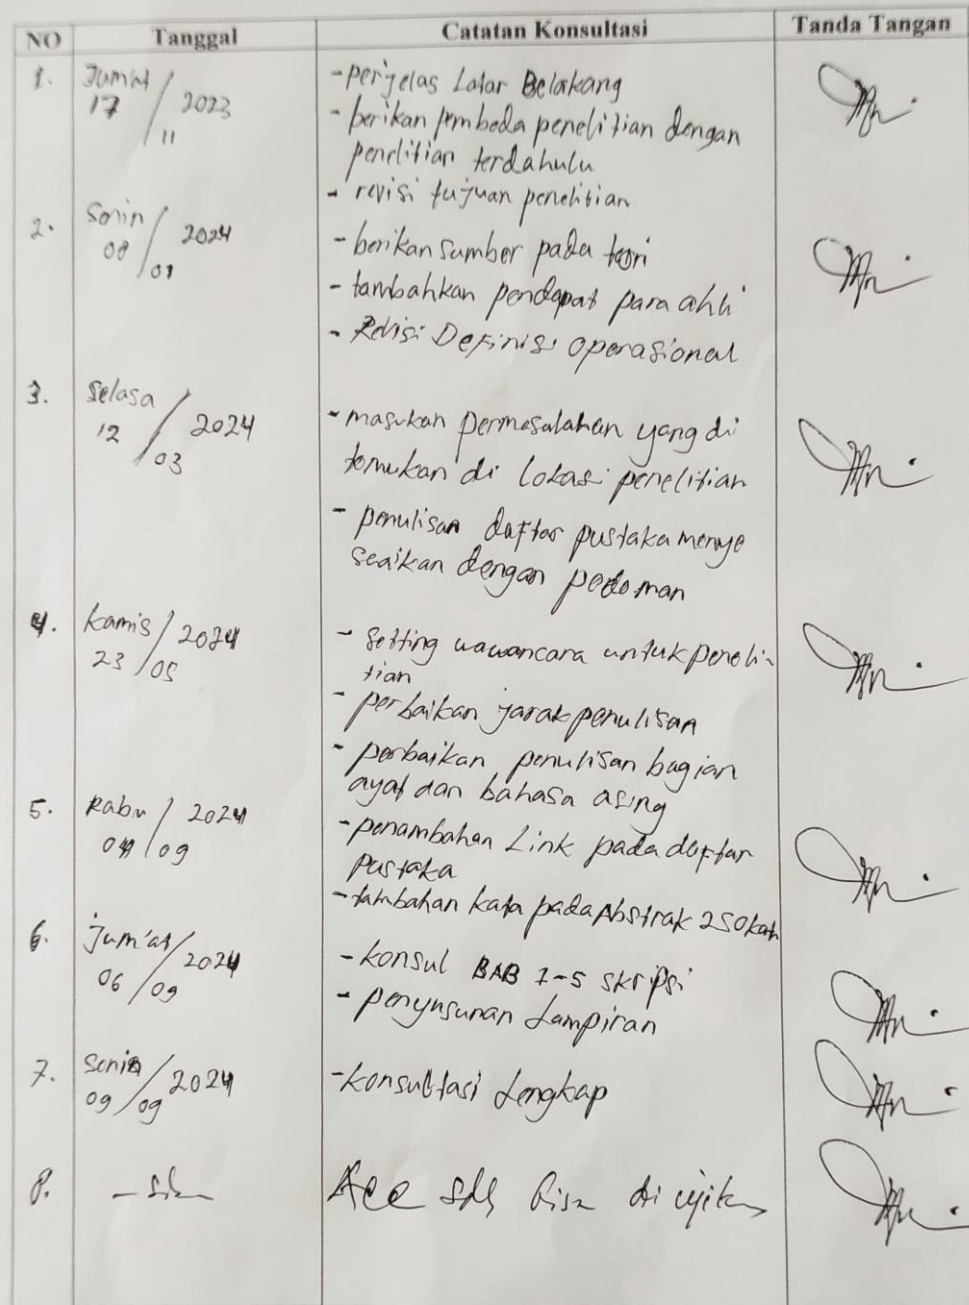 NO Tanggal Catatan Konsultasi Tanda Tangan
1. Jum'at 17/11 2023 - perjelas Latar Belakang
- berikan pembeda penelitian dengan
penelitian terdahulu
- revisi tujuan penelitian
2. Senin 08/01 2024 - berikan sumber pada teori
- tambahkan pendapat para ahli
- Revisi Definisi operasional
3. Selasa 12/03 2024 - masukan permasalahan yang di
temukan di lokasi penelitian
- penulisan daftar pustaka menye
seaikan dengan pedoman
4. Kamis 23/05 2024 - Setting wawancara untuk peneli-
tian
- perbaikan jarak penulisan
- perbaikan penulisan bagian
ayat dan bahasa asing
5. Rabu 04/09 2024 - penambahan Link pada daftar
pustaka
- tambahan kata pada Abstrak 250 kata
6. Jum'at 06/09 2024 - konsul BAB 1-5 skripsi
- penyusunan Lampiran
7. Senin 09/09 2024 - konsultasi Lengkap
8. Acc sdh bisa di ujikan